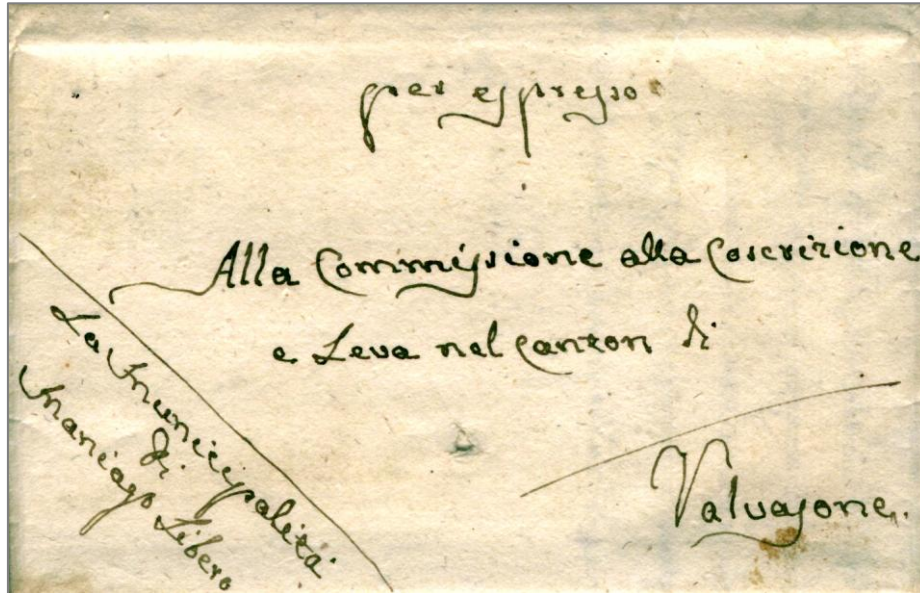 per espresso
Alla Commissione alla Coscrizione
e Leva nel Canton di
Valvasone.
La Municipalità
di
Maniago Libero